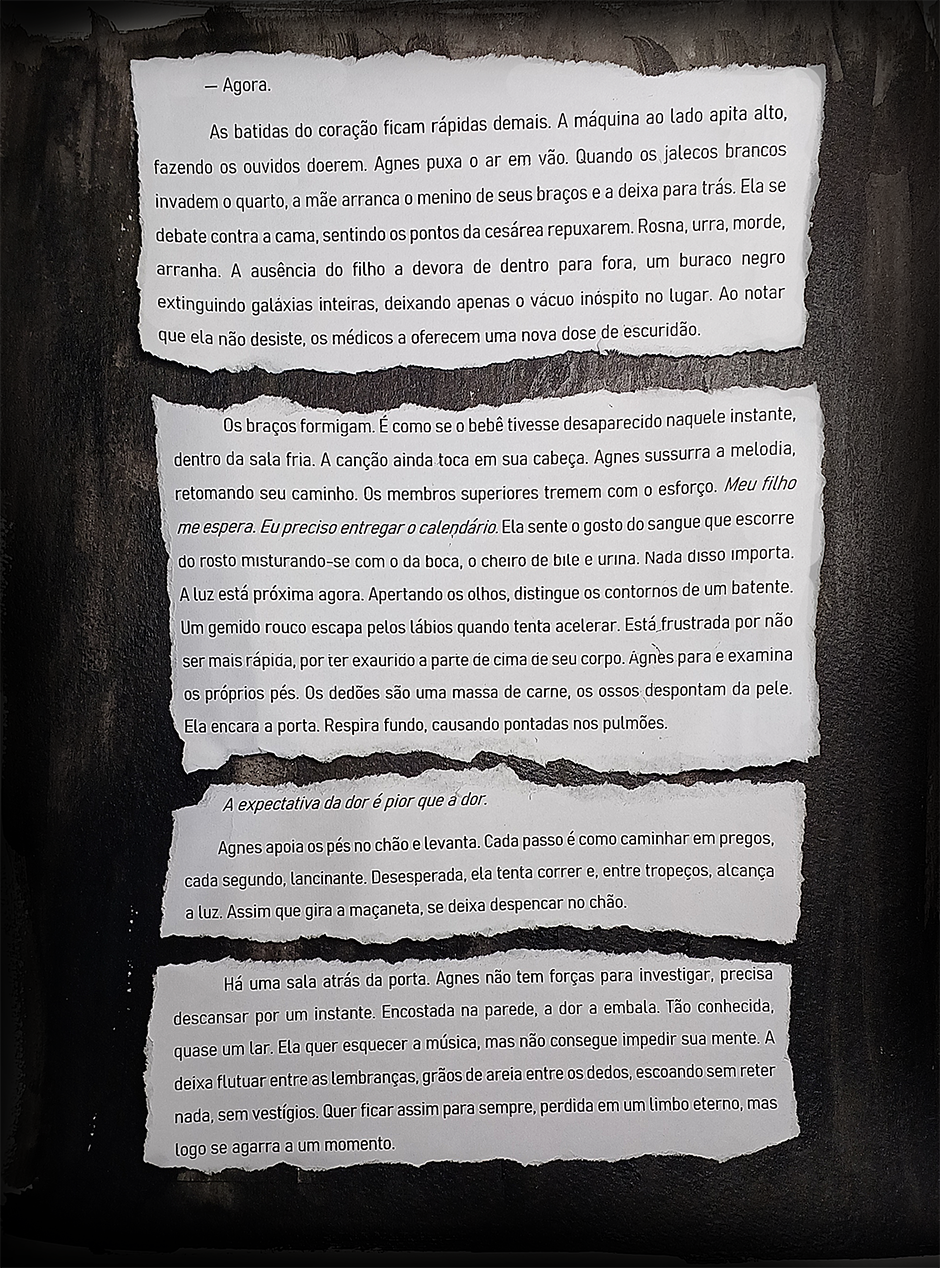 — Agora.
As batidas do coração ficam rápidas demais. A máquina ao lado apita alto,
fazendo os ouvidos doerem. Agnes puxa o ar em vão. Quando os jalecos brancos
invadem o quarto, a mãe arranca o menino de seus braços e a deixa para trás. Ela se
debate contra a cama, sentindo os pontos da cesárea repuxarem. Rosna, urra, morde,
arranha. A ausência do filho a devora de dentro para fora, um buraco negro
extinguindo galáxias inteiras, deixando apenas o vácuo inóspito no lugar. Ao notar
que ela não desiste, os médicos a oferecem uma nova dose de escuridão.
Os braços formigam. É como se o bebê tivesse desaparecido naquele instante,
dentro da sala fria. A canção ainda toca em sua cabeça. Agnes sussurra a melodia,
retomando seu caminho. Os membros superiores tremem com o esforço. Meu filho
me espera. Eu preciso entregar o calendário. Ela sente o gosto do sangue que escorre
do rosto misturando-se com o da boca, o cheiro de bile e urina. Nada disso importa.
A luz está próxima agora. Apertando os olhos, distingue os contornos de um batente.
Um gemido rouco escapa pelos lábios quando tenta acelerar. Está frustrada por não
ser mais rápida, por ter exaurido a parte de cima de seu corpo. Agnes para e examina
os próprios pés. Os dedões são uma massa de carne, os ossos despontam da pele.
Ela encara a porta. Respira fundo, causando pontadas nos pulmões.
A expectativa da dor é pior que a dor.
Agnes apoia os pés no chão e levanta. Cada passo é como caminhar em pregos,
cada segundo, lancinante. Desesperada, ela tenta correr e, entre tropeços, alcança
a luz. Assim que gira a maçaneta, se deixa despencar no chão.
Há uma sala atrás da porta. Agnes não tem forças para investigar, precisa
descansar por um instante. Encostada na parede, a dor a embala. Tão conhecida,
quase um lar. Ela quer esquecer a música, mas não consegue impedir sua mente. A
deixa flutuar entre as lembranças, grãos de areia entre os dedos, escoando sem reter
nada, sem vestígios. Quer ficar assim para sempre, perdida em um limbo eterno, mas
logo se agarra a um momento.